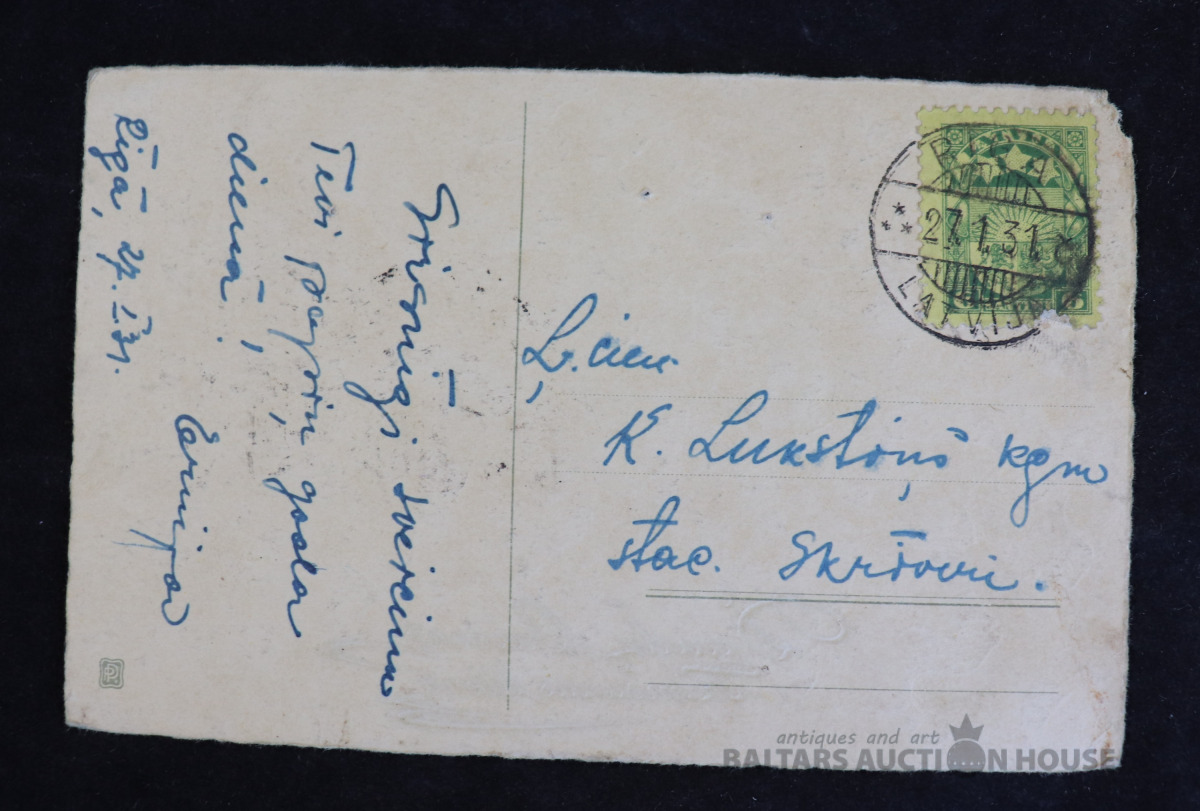 Sirsnīgi sveicinu
Tevi 
goda
dienā,
Rīgā, 27. I. 31.
Ļ. cien.
K. Lukstiņš kgm
stac. Skrīveri.
RĪGA
27.1.31
LATVIJA
LATVIJA
antiques and art
BALTARS AUCTION HOUSE